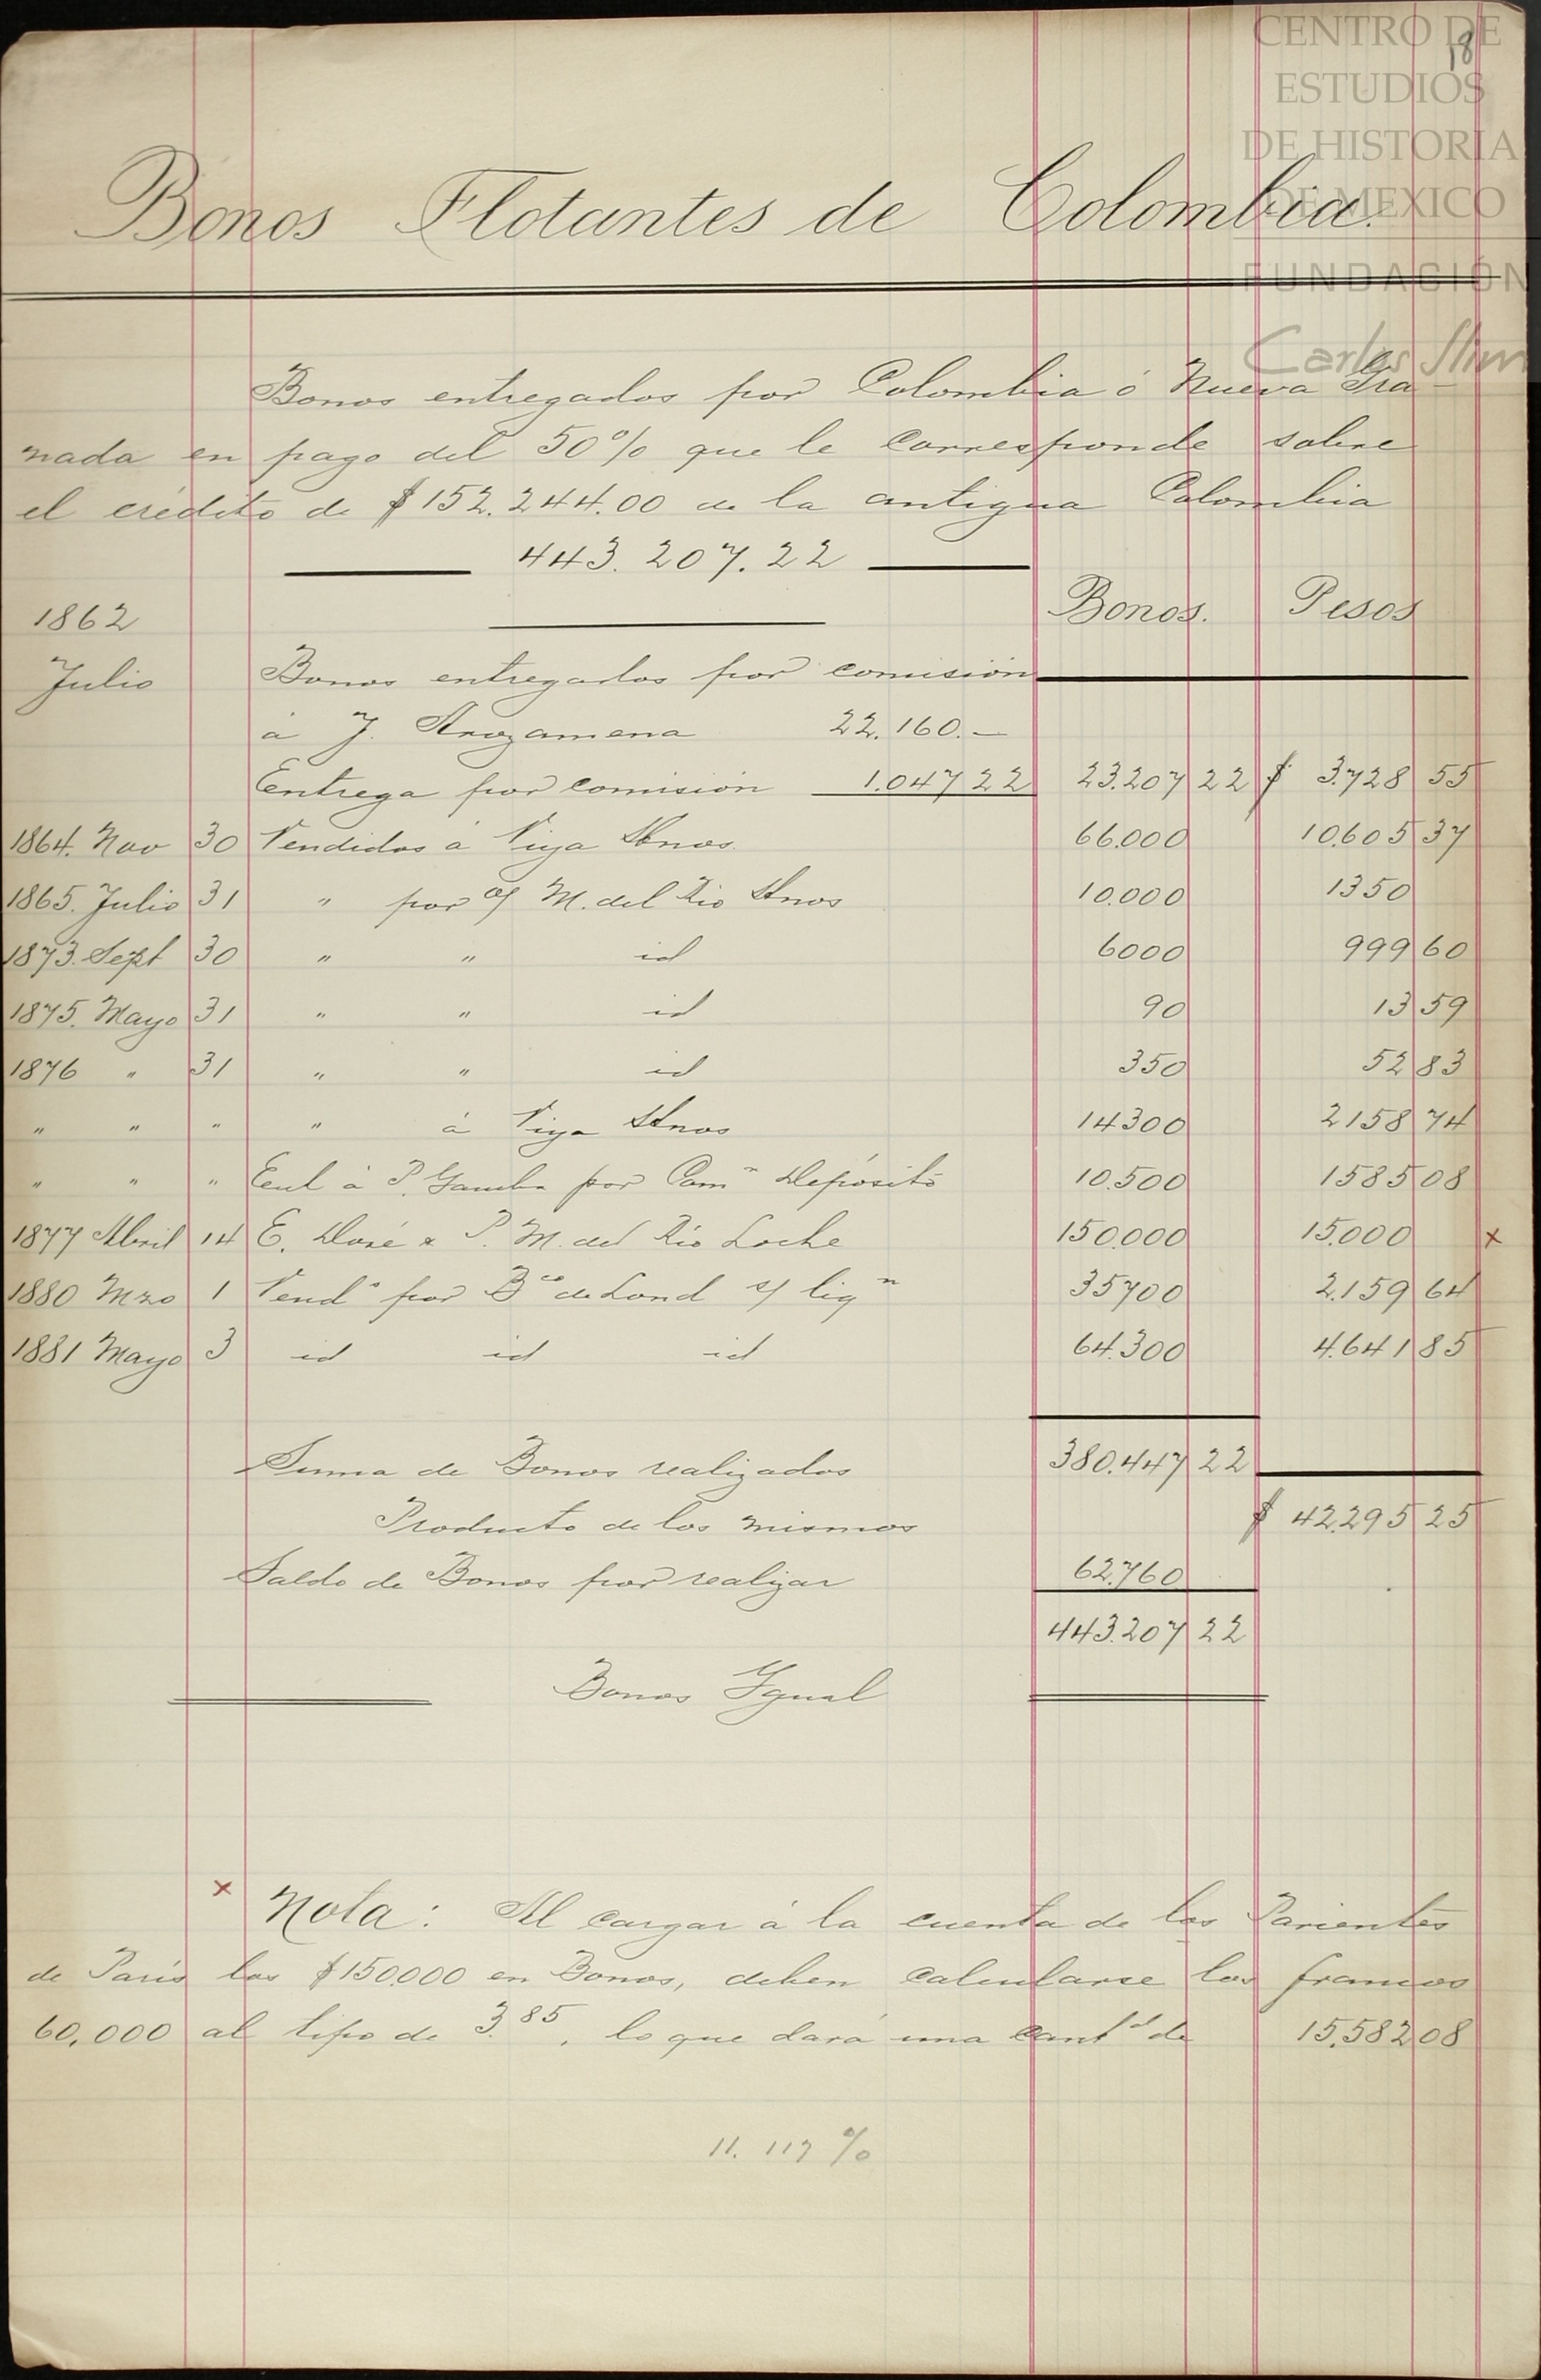 CENTRO DE
18
ESTUDIOS
DE HISTORIA
DE MEXICO
FUNDACIÓN
Carlos Slim
Bonos Flotantes de Colombia.
Bonos entregados por Colombia ó Nueva Gra-
nada en pago del 50% que le corresponde sobre
el crédito de $152.244.00 de la antigua Colombia
443.207.22
1862 Bonos. Pesos
Julio Bonos entregados por comisión
á J. Arozamena 22.160.—
Entrega por comisión 1.047 22 23.207 22 $ 3.728 55
1864. Nov 30 Vendidos á Viya Hnos. 66.000 10.605 37
1865. Julio 31 " por M. del Rio Hnos 10.000 1350
1873. Sept 30 " " id 6000 999 60
1875. Mayo 31 " " id 90 13 59
1876 " 31 " " id 350 52 83
" " " " á Viya Hnos 14300 2158 74
" " " á P. Gamba por Comn Depósito 10.500 1585 08
1877 Abril 14 E. Doré x P. M. del Rio Loche 150.000 15.000 x
1880 Mzo 1 Vendo por Bco de Lond s/ liqn 35700 2.159 64
1881 Mayo 3 id id id 64.300 4.641 85
Suma de Bonos realizados 380.447 22
Producto de los mismos $ 42.295 25
Saldo de Bonos por realizar 62.760
443.207 22
Bonos Ygual
x Nota: Al cargar á la cuenta de los Parientes
de Paris los $150.000 en Bonos, deben calcularse los francos
60,000 al tipo de 3.85, lo que dará una cantd de 15.582 08
11.117 %